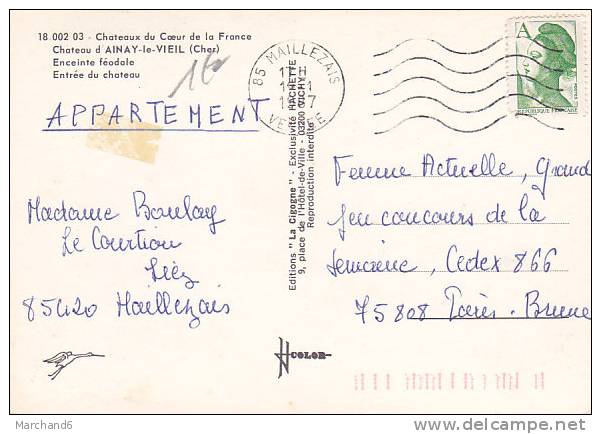 18 002 03 - Chateaux du Cœur de la France
Chateau d'AINAY-le-VIEIL (Cher)
Enceinte féodale
Entrée du chateau
APPARTEMENT
85 MAILLEZAIS
A
REPUBLIQUE FRANÇAISE
Editions "La Cigogne" - Exclusivité HACHETTE
9, place de l'Hôtel-de-Ville - 03200 VICHY
Reproduction interdite
Madame Boulay
Le Courtiou
Liez
85420 Maillezais
Femme Actuelle, Grand
Jeu concours de la
Semaine, Cedex 866
75808 Paris - Brune
COLOR
Marchand6
www.delcampe.net